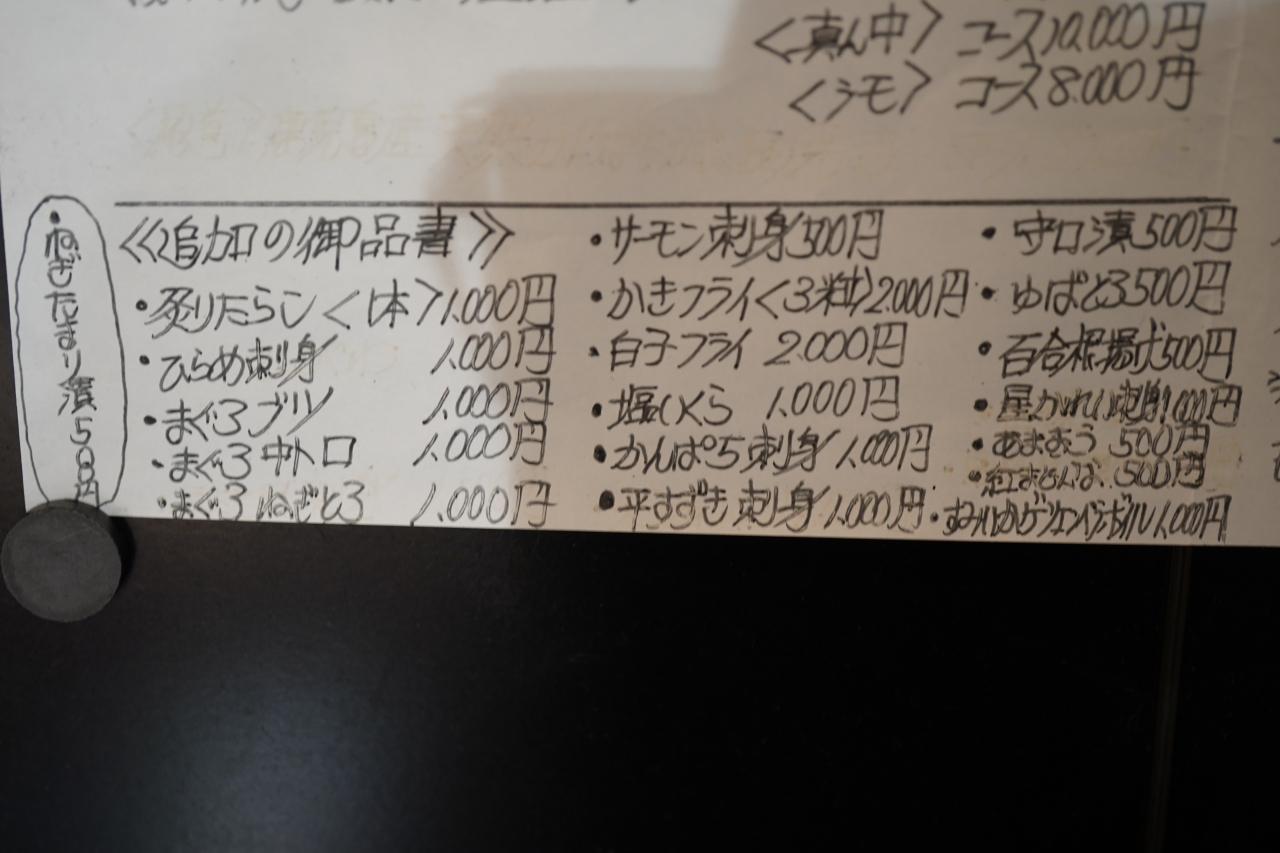 〈真ん中〉コース10.000円
〈シモ〉コース8.000円
・ねぎたまり漬500円
《追加の御品書》
・炙りたらこ〈1本〉1.000円
・ひらめ刺身 1.000円
・まぐろブツ 1.000円
・まぐろ中トロ 1.000円
・まぐろねぎとろ 1.000円
・サーモン刺身500円
・かきフライ〈3粒〉2.000円
・白子フライ 2.000円
・塩いくら 1.000円
・かんぱち刺身 1.000円
・平すずき刺身 1.000円
・守口漬500円
・ゆばとろ500円
・百合根揚げ500円
・星かれい刺身1.000円
・あまおう 500円
・紅まどんな 500円
・すみいかゲソエンペラボイル1.000円